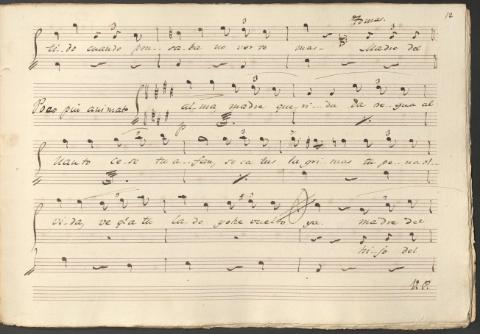 Tomas. 12
ti..do cuando pen..sa..ba no ver..te mas.. Madre del
Poco piu animato al..ma madre que..ri..da da tregua al
llanto ce..se tu a..fan, se..ca tus la..gri..mas tu pe..na ol..
vi..da, ve q'a tu la..do yo he vuelto ya. madre del
hi..jo del